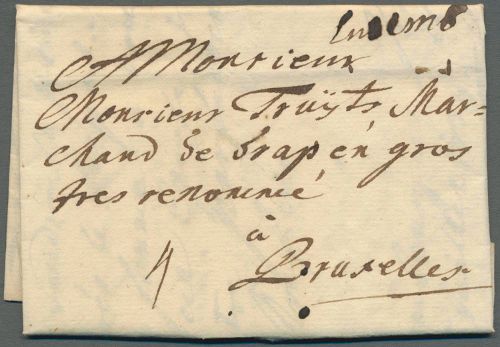 A Monsieur
Monsieur Truÿts, Mar=
chand de drap en gros
tres renommé
à
4 Bruxelles